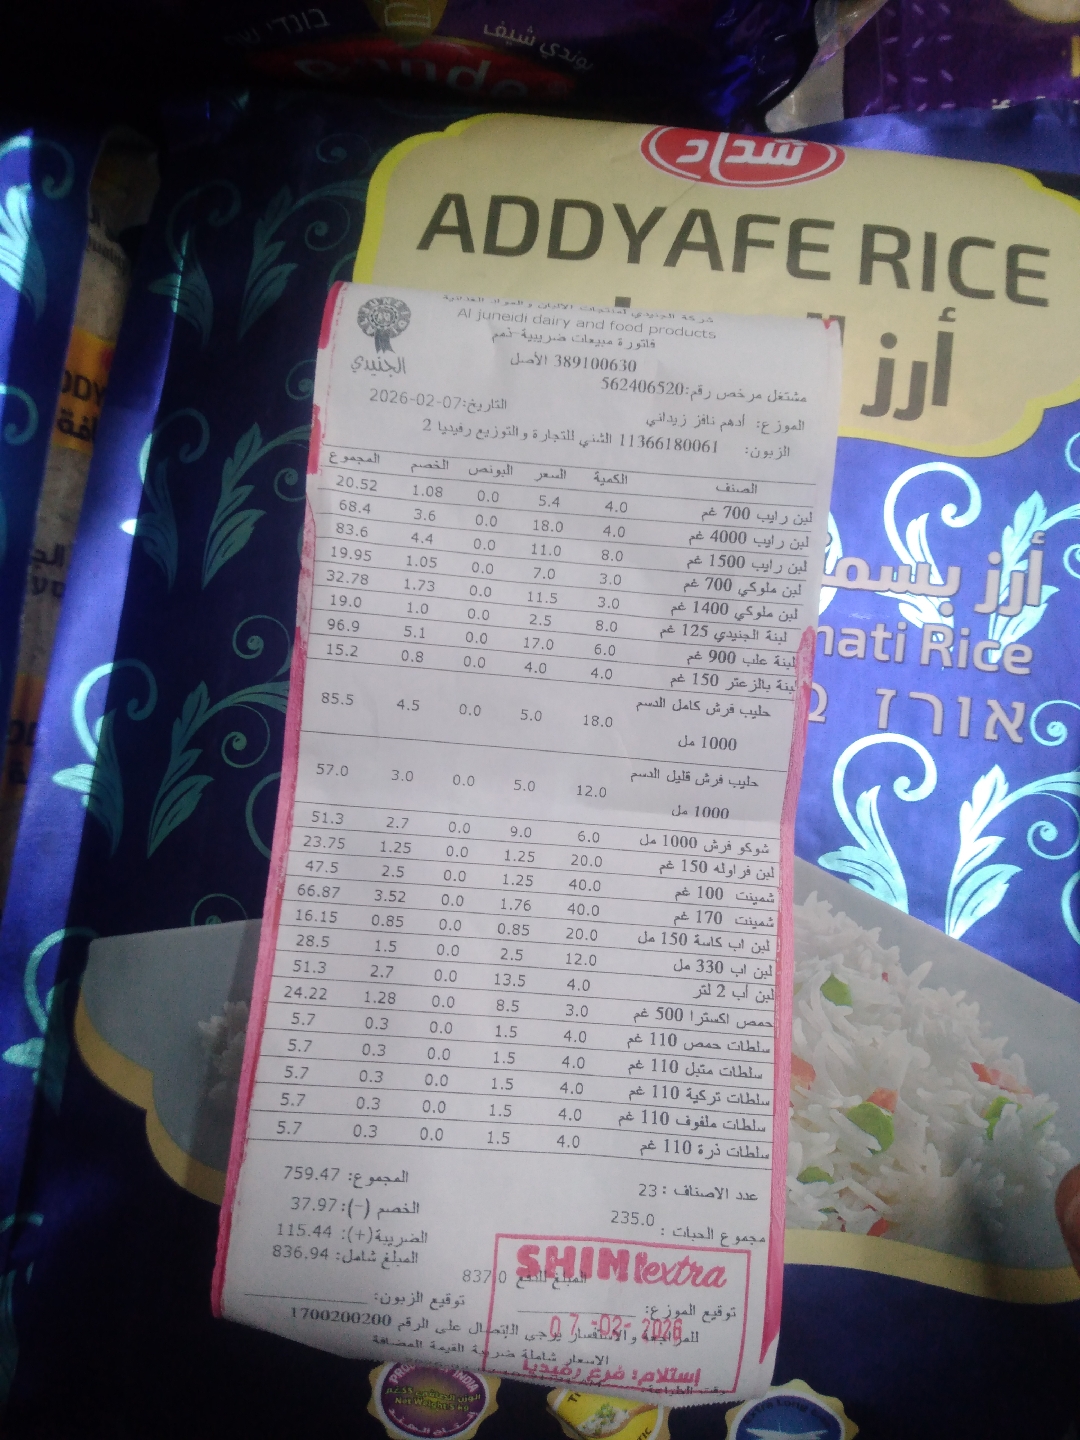 בונדי שף
بوندي شيف
شداد
ADDYAFE RICE
أرز
أرز بسم
mati Rice
אורז
شركة الجنيدي لمنتجات الألبان والمواد الغذائية
Al juneidi dairy and food products
الجنيدي
فاتورة مبيعات ضريبية-ذمم
389100630 الأصل
مشتغل مرخص رقم:562406520
التاريخ:2026-02-07
الموزع: أدهم نافز زيداني
الزبون: 11366180061 الشني للتجارة والتوزيع رفيديا 2
الصنف الكمية السعر البونص الخصم المجموع
لبن رايب 700 غم 4.0 5.4 0.0 1.08 20.52
لبن رايب 4000 غم 4.0 18.0 0.0 3.6 68.4
لبن رايب 1500 غم 8.0 11.0 0.0 4.4 83.6
لبن ملوكي 700 غم 3.0 7.0 0.0 1.05 19.95
لبن ملوكي 1400 غم 3.0 11.5 0.0 1.73 32.78
لبنة الجنيدي 125 غم 8.0 2.5 0.0 1.0 19.0
لبنة علب 900 غم 6.0 17.0 0.0 5.1 96.9
لبنة بالزعتر 150 غم 4.0 4.0 0.0 0.8 15.2
حليب فرش كامل الدسم 18.0 5.0 0.0 4.5 85.5
1000 مل
حليب فرش قليل الدسم 12.0 5.0 0.0 3.0 57.0
1000 مل
شوكو فرش 1000 مل 6.0 9.0 0.0 2.7 51.3
لبن فراوله 150 غم 20.0 1.25 0.0 1.25 23.75
شمينت 100 غم 40.0 1.25 0.0 2.5 47.5
شمينت 170 غم 40.0 1.76 0.0 3.52 66.87
لبن اب كاسة 150 مل 20.0 0.85 0.0 0.85 16.15
لبن اب 330 مل 12.0 2.5 0.0 1.5 28.5
لبن أب 2 لتر 4.0 13.5 0.0 2.7 51.3
حمص اكسترا 500 غم 3.0 8.5 0.0 1.28 24.22
سلطات حمص 110 غم 4.0 1.5 0.0 0.3 5.7
سلطات متبل 110 غم 4.0 1.5 0.0 0.3 5.7
سلطات تركية 110 غم 4.0 1.5 0.0 0.3 5.7
سلطات ملفوف 110 غم 4.0 1.5 0.0 0.3 5.7
سلطات ذرة 110 غم 4.0 1.5 0.0 0.3 5.7
عدد الاصناف : 23 المجموع: 759.47
مجموع الحبات : 235.0 الخصم (-): 37.97
الضريبة(+): 115.44
المبلغ شامل: 836.94
المبلغ للدفع 837.0
SHINI extra
توقيع الموزع: توقيع الزبون:
07-02-2026
للمراجعة والاستفسار يرجى الإتصال على الرقم 1700200200
الاسعار شاملة ضريبة القيمة المضافة
إستلام: فرع رفيديا
وقت الطباعة:
PRODUCT OF INDIA
Net Weight 5 kg
Extra Long Grain